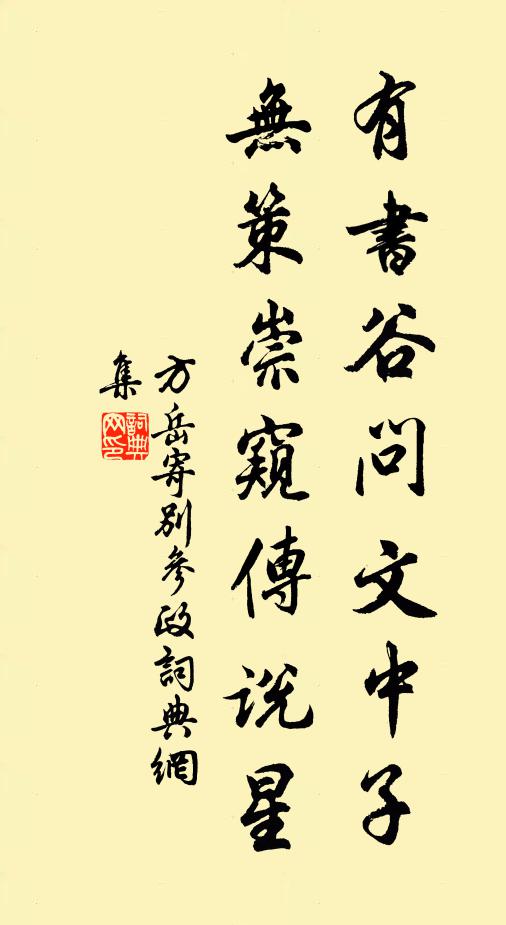 有書谷問文中子
無策崇窺傳說星
方岳寄別參政詞典網
集
詞典網印